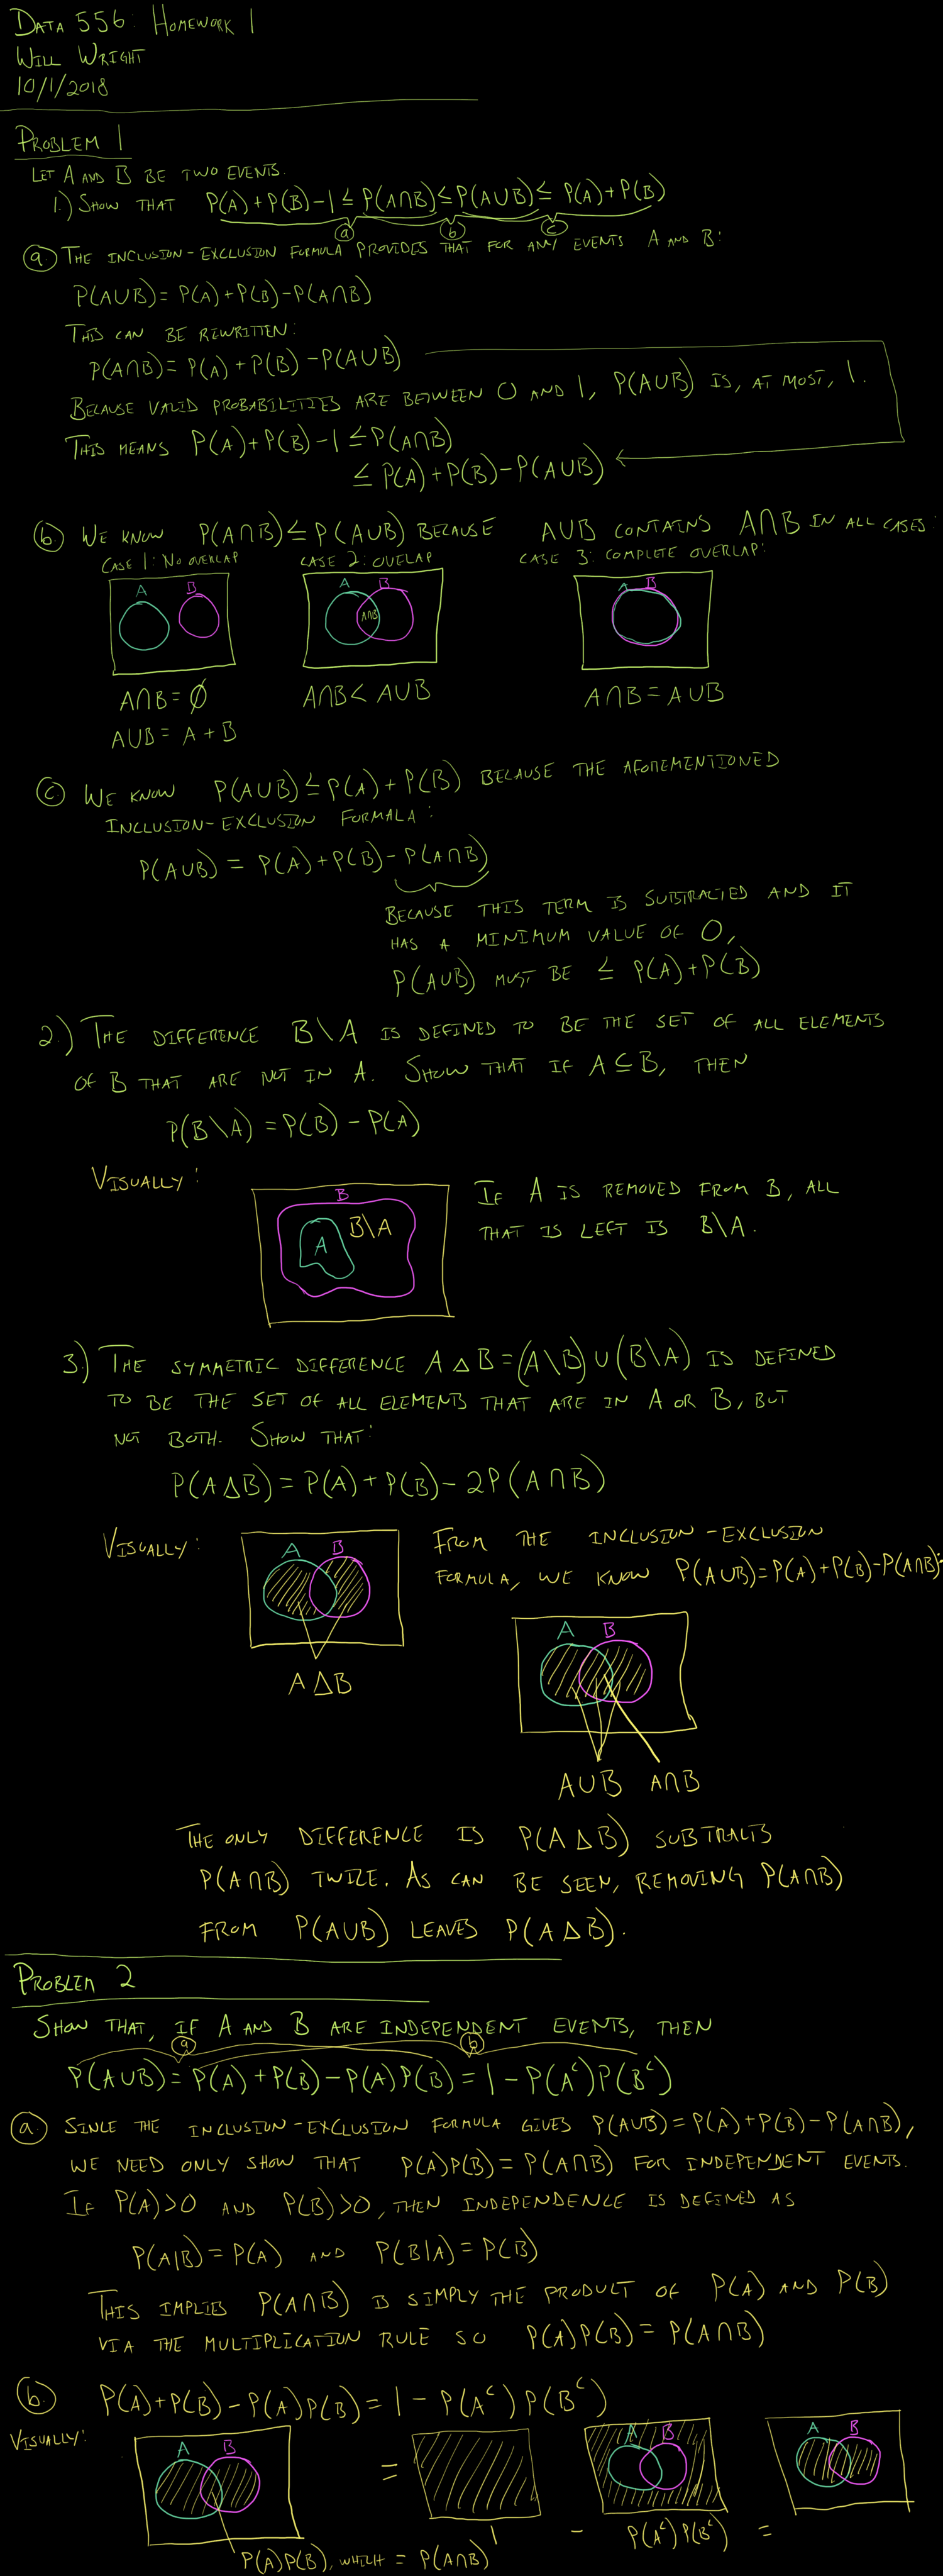 DATA 556: HOMEWORK 1
WILL WRIGHT
10/1/2018
PROBLEM 1
LET A AND B BE TWO EVENTS.
1.) SHOW THAT P(A)+P(B)-1≤P(A∩B)≤P(A∪B)≤P(A)+P(B)
a b c
a. THE INCLUSION-EXCLUSION FORMULA PROVIDES THAT FOR ANY EVENTS A AND B:
P(A∪B)=P(A)+P(B)-P(A∩B)
THIS CAN BE REWRITTEN:
P(A∩B)=P(A)+P(B)-P(A∪B)
BECAUSE VALID PROBABILITIES ARE BETWEEN 0 AND 1, P(A∪B) IS, AT MOST, 1.
THIS MEANS P(A)+P(B)-1≤P(A∩B)
≤P(A)+P(B)-P(A∪B)
b. WE KNOW P(A∩B)≤P(A∪B) BECAUSE A∪B CONTAINS A∩B IN ALL CASES:
CASE 1: NO OVERLAP CASE 2: OVELAP CASE 3: COMPLETE OVERLAP:
A B A B A B
A∩B
A∩B=∅ A∩B<A∪B A∩B=A∪B
A∪B=A+B
c. WE KNOW P(A∪B)≤P(A)+P(B) BECAUSE THE AFOREMENTIONED
INCLUSION-EXCLUSION FORMALA:
P(A∪B)=P(A)+P(B)-P(A∩B)
BECAUSE THIS TERM IS SUBTRACTED AND IT
HAS A MINIMUM VALUE OF 0,
P(A∪B) MUST BE ≤ P(A)+P(B)
2.) THE DIFFERENCE B\A IS DEFINED TO BE THE SET OF ALL ELEMENTS
OF B THAT ARE NOT IN A. SHOW THAT IF A⊆B, THEN
P(B\A)=P(B)-P(A)
VISUALLY:
B
A B\A
IF A IS REMOVED FROM B, ALL
THAT IS LEFT IS B\A.
3.) THE SYMMETRIC DIFFERENCE A△B=(A\B)∪(B\A) IS DEFINED
TO BE THE SET OF ALL ELEMENTS THAT ARE IN A OR B, BUT
NOT BOTH. SHOW THAT:
P(A△B)=P(A)+P(B)-2P(A∩B)
VISUALLY:
A B
A△B
FROM THE INCLUSION-EXCLUSION
FORMULA, WE KNOW P(A∪B)=P(A)+P(B)-P(A∩B):
A B
A∪B A∩B
THE ONLY DIFFERENCE IS P(A△B) SUBTRACTS
P(A∩B) TWICE. AS CAN BE SEEN, REMOVING P(A∩B)
FROM P(A∪B) LEAVES P(A△B).
PROBLEM 2
SHOW THAT, IF A AND B ARE INDEPENDENT EVENTS, THEN
a b
P(A∪B)=P(A)+P(B)-P(A)P(B)=1-P(Aᶜ)P(Bᶜ)
a. SINCE THE INCLUSION-EXCLUSION FORMULA GIVES P(A∪B)=P(A)+P(B)-P(A∩B),
WE NEED ONLY SHOW THAT P(A)P(B)=P(A∩B) FOR INDEPENDENT EVENTS.
IF P(A)>0 AND P(B)>0, THEN INDEPENDENCE IS DEFINED AS
P(A|B)=P(A) AND P(B|A)=P(B)
THIS IMPLIES P(A∩B) IS SIMPLY THE PRODUCT OF P(A) AND P(B)
VIA THE MULTIPLICATION RULE SO P(A)P(B)=P(A∩B)
b. P(A)+P(B)-P(A)P(B)=1-P(Aᶜ)P(Bᶜ)
VISUALLY:
A B = A B A B
1 - P(Aᶜ)P(Bᶜ) =
P(A)P(B), WHICH = P(A∩B)